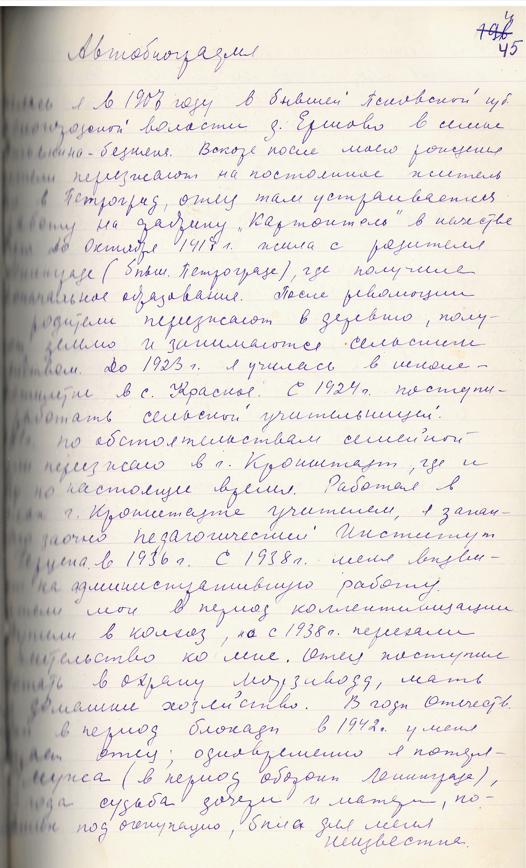 45
Автобиография
я в 1907 году в бывшей Псковской губ.
волости д. Ершово в семье
Вскоре после моего рождения
переезжают на постоянное житель
в Петроград, отец там устраивается
на фабрику „Картонтоль" в качестве
до октября 1917 г. жила с родителями
(бывш. Петрограде), где получила
образование. После революции
родители переезжают в деревню, полу-
землю и занимаются сельским
До 1923 г. я училась в школе-
в с. Красное. С 1924 г. поступи-
работать сельской учительницей.
по обстоятельствам семейной
переезжаю в г. Кронштадт, где и
по настоящее время. Работая в
г. Кронштадте учителем, я закан-
заочно педагогический Институт
в 1936 г. С 1938 г. меня выдви-
на административную работу.
мои в период коллективизации
в колхоз, а с 1938 г. переехали
ко мне. Отец поступил
в охрану Морзавода, мать
домашнее хозяйство. В годы Отечеств.
в период блокады в 1942 г. у меня
отец; одновременно я потеря-
мужа (в период обороны Ленинграда),
судьба дочери и матери, по-
под оккупацию, была для меня
неизвестна.